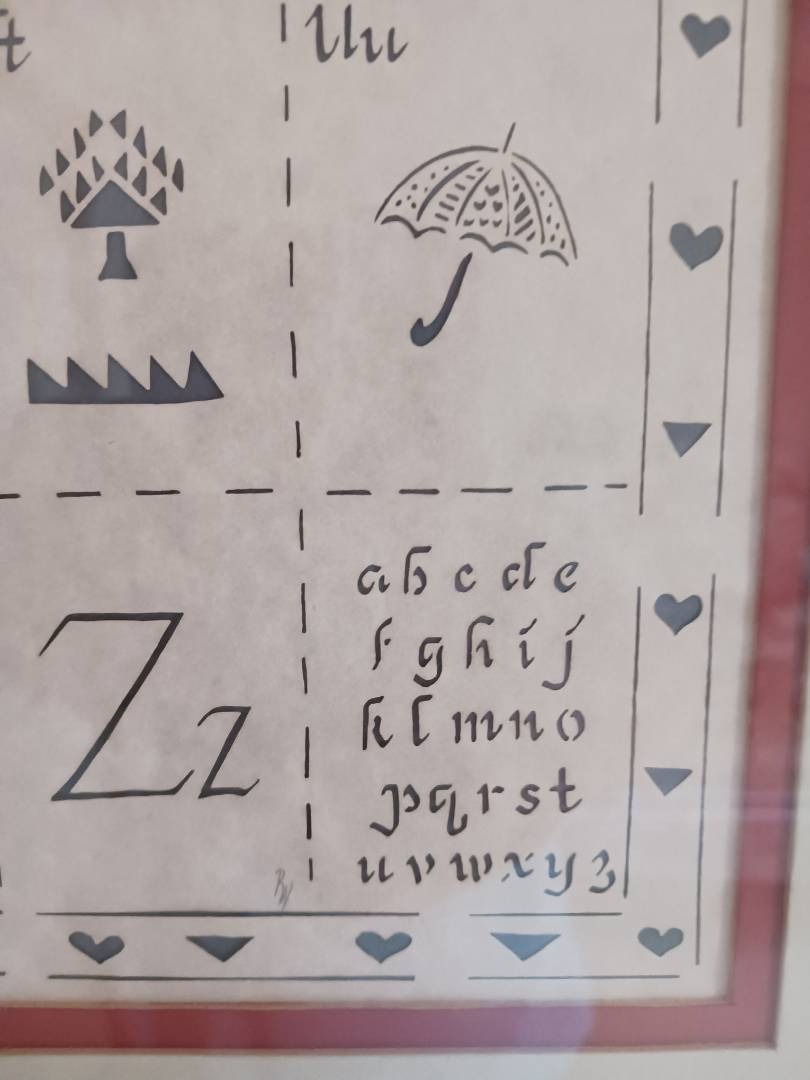 t Uu
Zz
a b c d e
f g h i j
k l m n o
p q r s t
u v w x y z